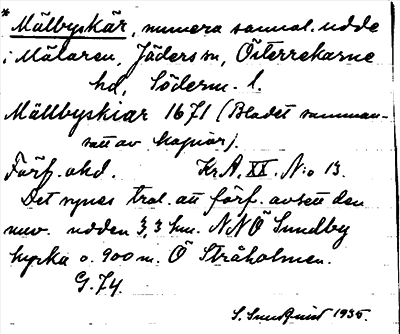 * Mälbyskär, numera sannol. udde
i Mälaren, Jäders sn, Österrekarne
hd, Söderm. l.
Mällbyskiar 1671 (Bladet samman-
satt av kopior).
Förf. okd. Kr.A. XX. N:o 13.
Det synes trol. att förf. avsett den
nuv. udden 3,3 km. NNÖ Sundby
kyrka o. 900 m. Ö Stråholmen.
G. 74.
S. Sundquist 1935